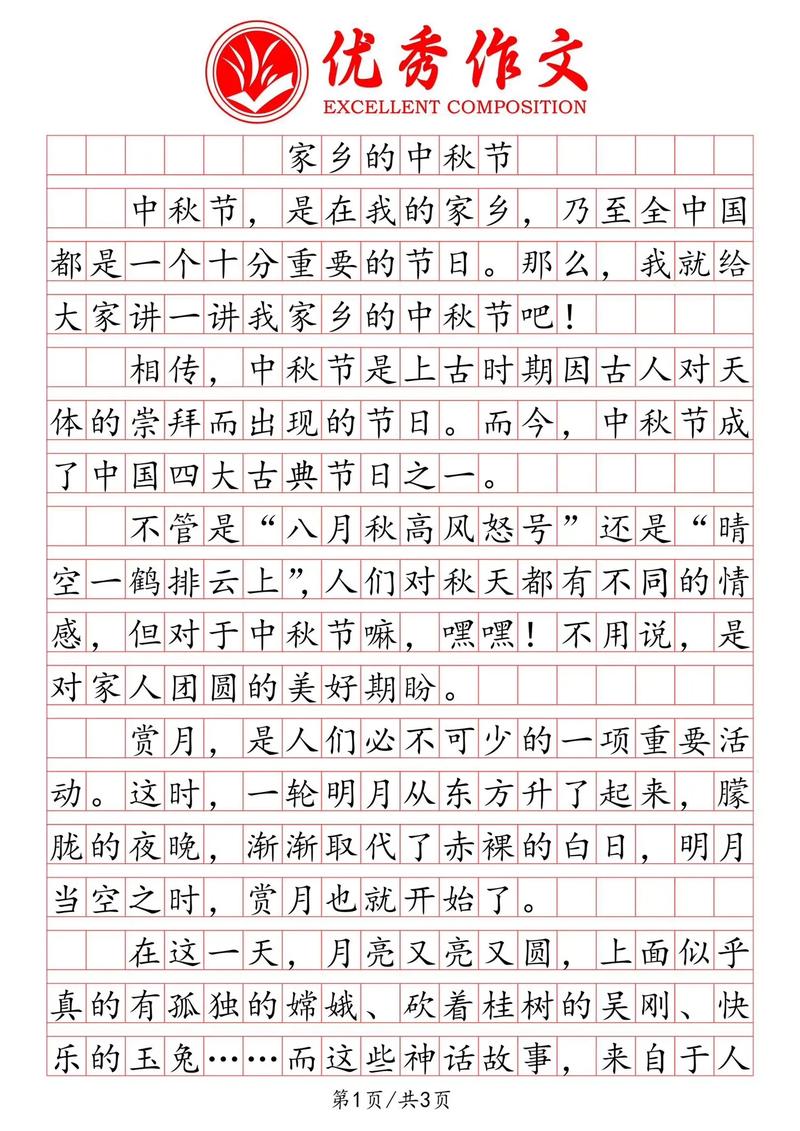 优秀作文
EXCELLENT COMPOSITION
家乡的中秋节
中秋节，是在我的家乡，乃至全中国
都是一个十分重要的节日。那么，我就给
大家讲一讲我家乡的中秋节吧！
相传，中秋节是上古时期因古人对天
体的崇拜而出现的节日。而今，中秋节成
了中国四大古典节日之一。
不管是“八月秋高风怒号”还是“晴
空一鹤排云上”，人们对秋天都有不同的情
感，但对于中秋节嘛，嘿嘿！不用说，是
对家人团圆的美好期盼。
赏月，是人们必不可少的一项重要活
动。这时，一轮明月从东方升了起来，朦
胧的夜晚，渐渐取代了赤裸的白日，明月
当空之时，赏月也就开始了。
在这一天，月亮又亮又圆，上面似乎
真的有孤独的嫦娥、砍着桂树的吴刚、快
乐的玉兔……而这些神话故事，来自于人
第1页/共3页